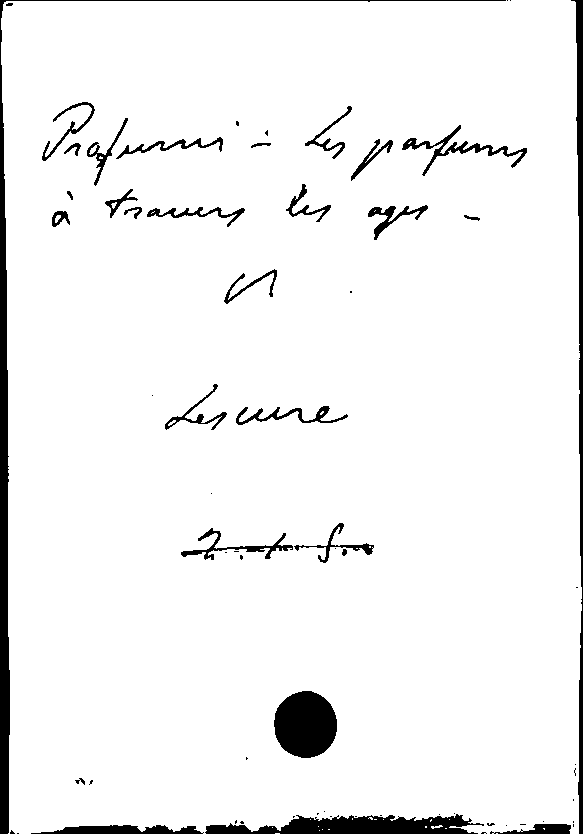 Profumi - Les parfums
à travers les ages -
Lescure